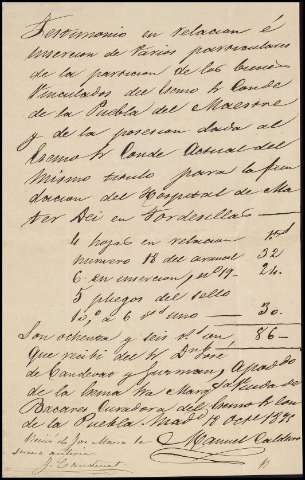 Testimonio en relacion é
insercion de varios particulares
de la particion de los bienes
Vinculados del Excmo Sr Conde
de la Puebla del Maestre
y de la posesion dada al
Excmo Sr Conde Actual del
mismo titulo para la fun
dacion del Hospital de Ma
ter Dei en Tordesillas
4 hojas en relacion
numero 18 del arancel 32
6 en insercion, nº 19 24
5 pliegos del sello
a 6 uno 30
Son ochenta y seis 86
Que recibí del Sr Dn José
de y Guzman, Apodo
de la Excma Sra Marqsa Viuda de
Bacares Curadora del Excmo Sr Con
de de la Puebla. Madd 18 Octe
Manuel Caldeiro
suma anterior